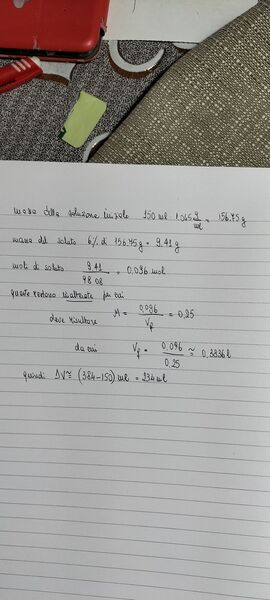 massa della soluzione iniziale 150 ml · 1.045 g/ml = 156.75 g
massa del soluto 6% di 156.75 g = 9.41 g
moli di soluto 9.41/98.08 = 0.096 mol
queste restano inalterate per cui
deve risultare M = 0.096/Vf = 0.25
da cui Vf = 0.096/0.25 ≅ 0.3836 l
quindi ΔV ≅ (384-150) ml = 234 ml